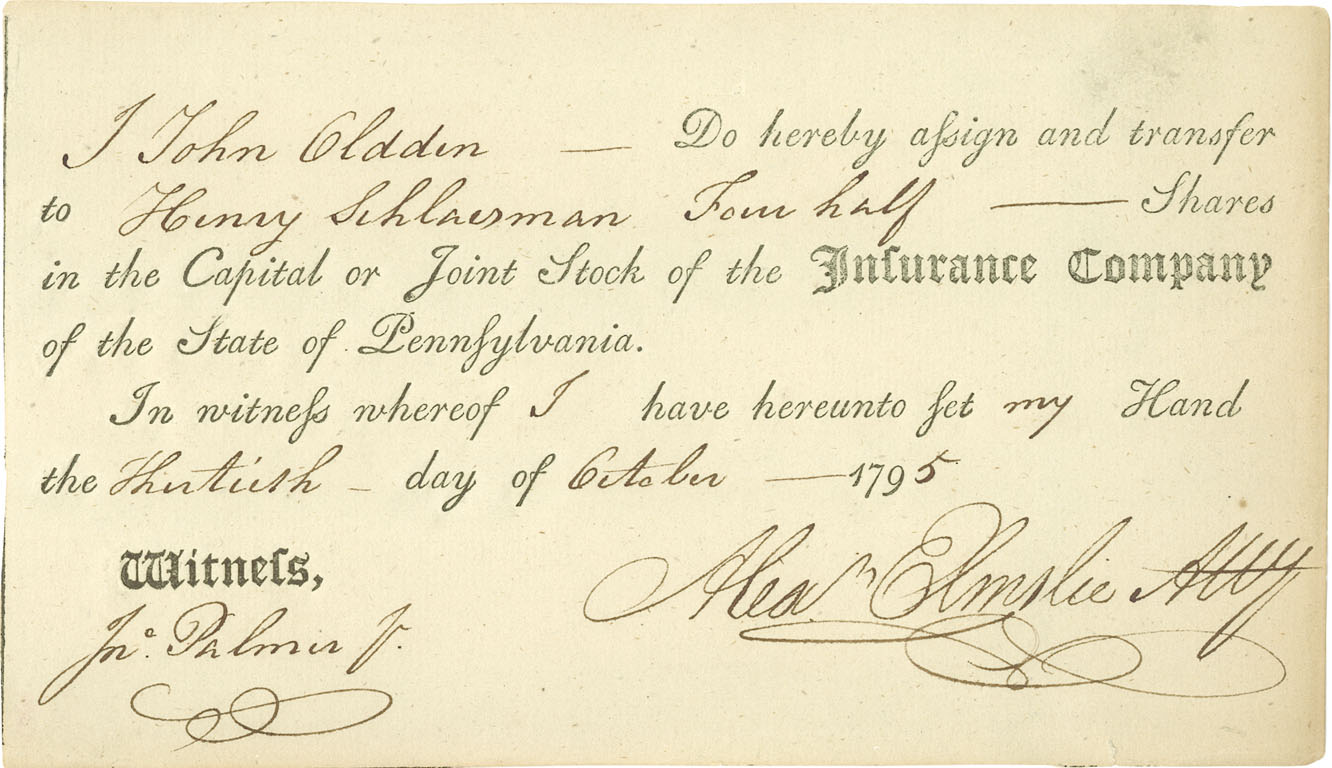 I John Oldden — Do hereby aſsign and transfer
to Henry Schlaesman Four half — Shares
in the Capital or Joint Stock of the Inſurance Company
of the State of Pennſylvania.
In witneſs whereof I have hereunto ſet my Hand
the Thirtieth – day of October — 1795
Witneſs,
Jno. Palmer Jr.
Alexr. Elmslie Atty